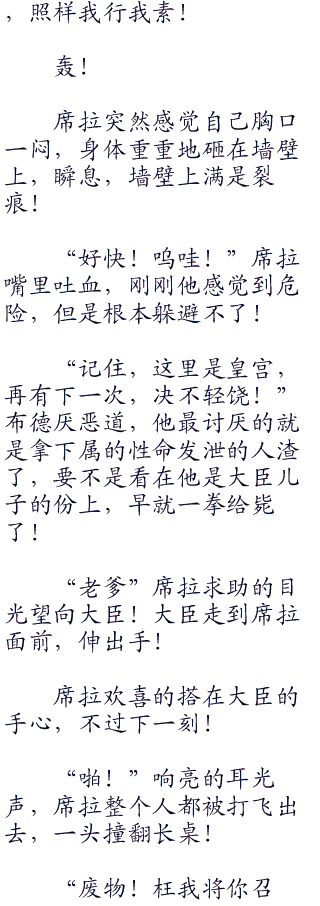 ，照样我行我素！
轰！
席拉突然感觉自己胸口
一闷，身体重重地砸在墙壁
上，瞬息，墙壁上满是裂
痕！
“好快！呜哇！”席拉
嘴里吐血，刚刚他感觉到危
险，但是根本躲避不了！
“记住，这里是皇宫，
再有下一次，决不轻饶！”
布德厌恶道，他最讨厌的就
是拿下属的性命发泄的人渣
了，要不是看在他是大臣儿
子的份上，早就一拳给毙
了！
“老爹”席拉求助的目
光望向大臣！大臣走到席拉
面前，伸出手！
席拉欢喜的搭在大臣的
手心，不过下一刻！
“啪！”响亮的耳光
声，席拉整个人都被打飞出
去，一头撞翻长桌！
“废物！枉我将你召